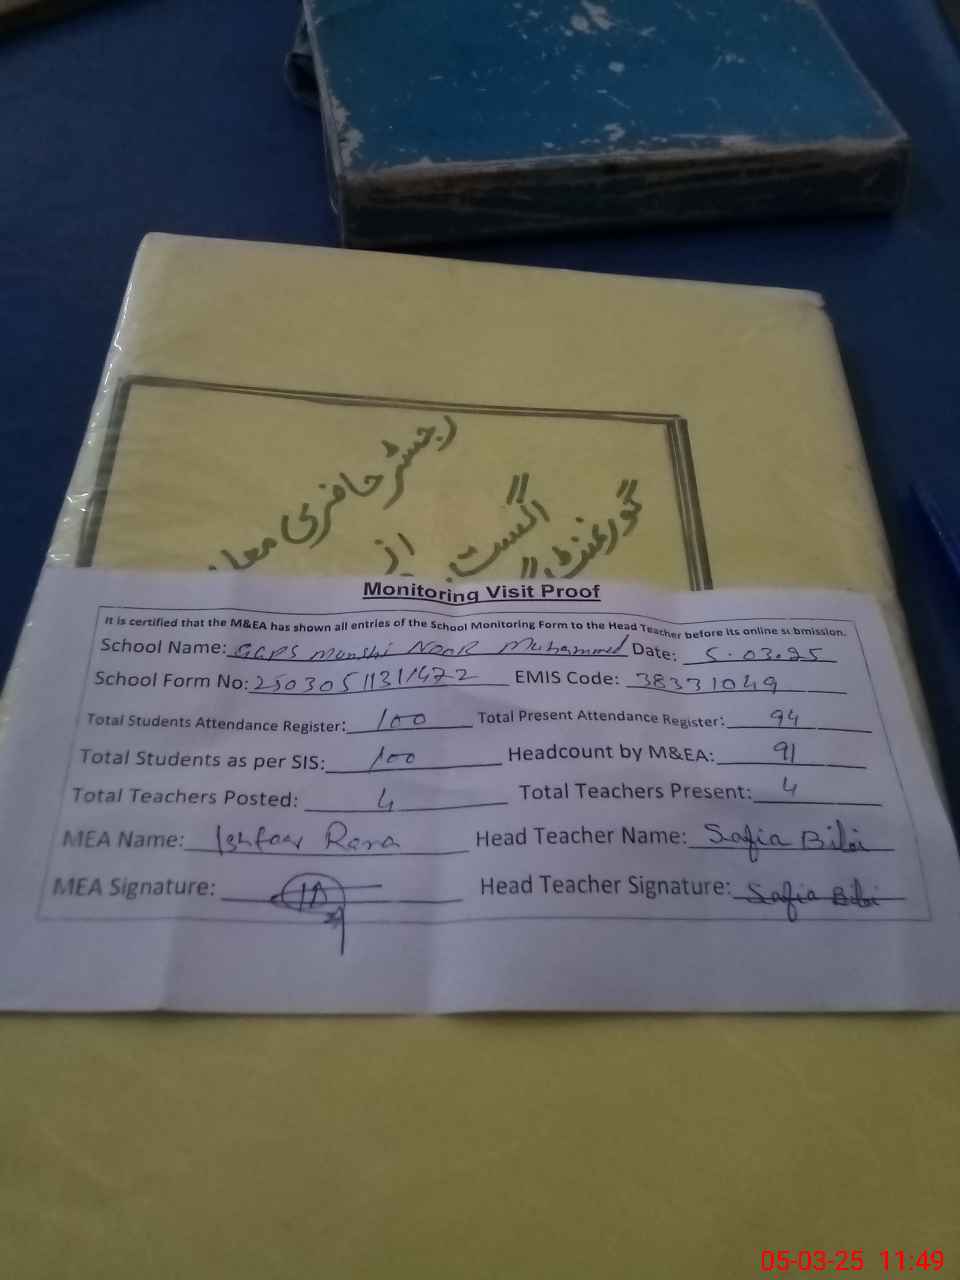 رجسٹر حاضری
اگست
از
گورنمنٹ
Monitoring Visit Proof
It is certified that the M&EA has shown all entries of the School Monitoring Form to the Head Teacher before its online submission.
School Name: GGPS Munshi NOOR Muhammed Date: 5.03.25
School Form No: EMIS Code: 38331049
Total Students Attendance Register: 100 Total Present Attendance Register: 94
Total Students as per SIS: 100 Headcount by M&EA: 91
Total Teachers Posted: 4 Total Teachers Present: 4
MEA Name: Head Teacher Name: Safia Bibi
MEA Signature: Head Teacher Signature: Safia Bibi
05-03-25 11:49